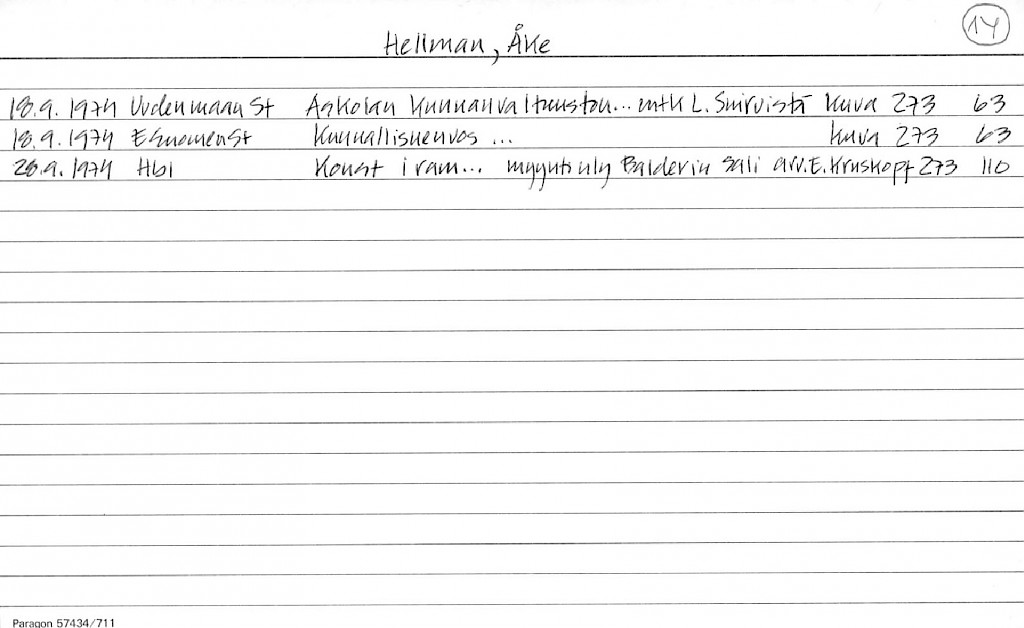 14
Hellman, Åke
18.9.1974 Uudenmaan St Askolan Kunnanvaltuuston... mtk L. Suirvistä Kuva 273 63
18.9.1974 ESuomenSt Kunnallisneuvos ... Kuva 273 63
28.9.1974 Hbl Konst i ram... myyntinly Balderin Sali arv. E. Kruskopf 273 110
Paragon 57434/711